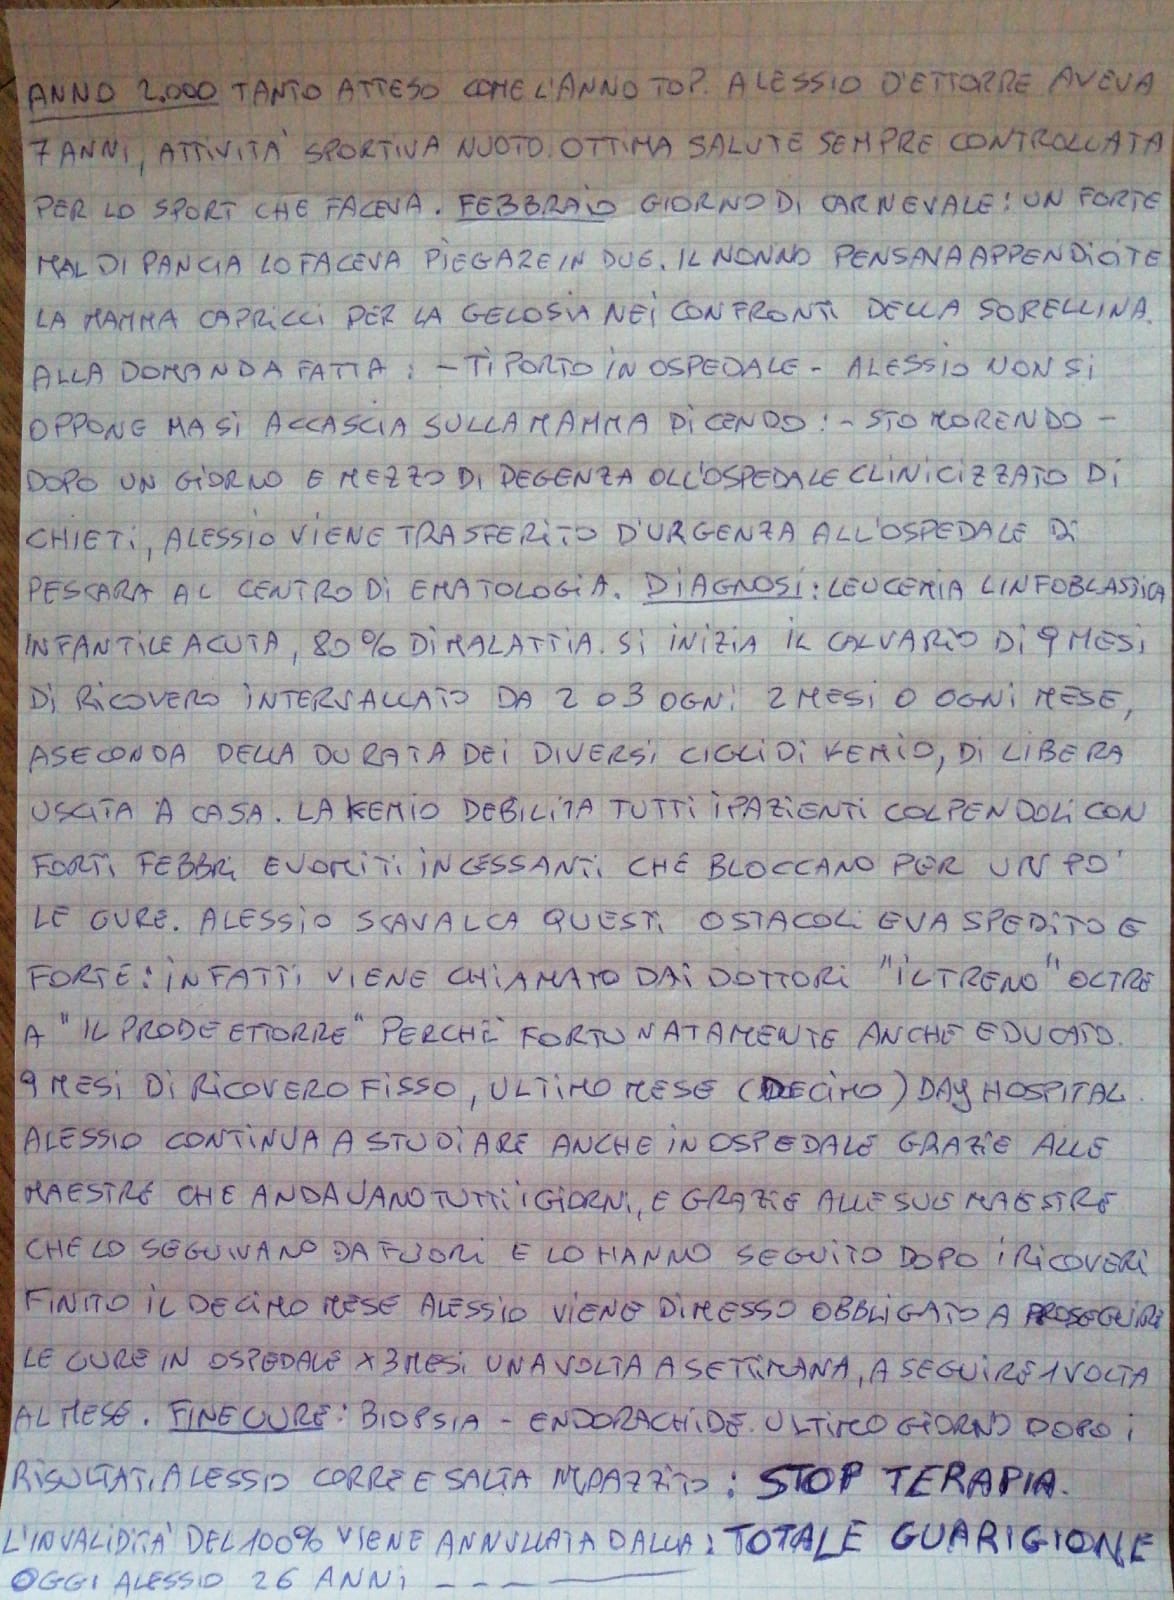 ANNO 2.000 TANTO ATTESO COME L'ANNO TOP. ALESSIO D'ETTORRE AVEVA
7 ANNI, ATTIVITA' SPORTIVA NUOTO. OTTIMA SALUTE SEMPRE CONTROLLATA
PER LO SPORT CHE FACEVA. FEBBRAIO GIORNO DI CARNEVALE: UN FORTE
MAL DI PANCIA LO FACEVA PIEGARE IN DUE. IL NONNO PENSAVA APPENDICITE
LA MAMMA CAPRICCI PER LA GELOSIA NEI CONFRONTI DELLA SORELLINA.
ALLA DOMANDA FATTA: - TI PORTO IN OSPEDALE - ALESSIO NON SI
OPPONE MA SI ACCASCIA SULLA MAMMA DICENDO: - STO MORENDO -
DOPO UN GIORNO E MEZZO DI DEGENZA OLL'OSPEDALE CLINICIZZATO DI
CHIETI, ALESSIO VIENE TRASFERITO D'URGENZA ALL'OSPEDALE DI
PESCARA AL CENTRO DI EMATOLOGIA. DIAGNOSI: LEUCEMIA LINFOBLASTICA
INFANTILE ACUTA, 80% DI MALATTIA. SI INIZIA IL CALVARIO DI 9 MESI
DI RICOVERO INTERVALLATO DA 2 O 3 OGNI 2 MESI O OGNI MESE,
A SECONDA DELLA DURATA DEI DIVERSI CICLI DI KEMIO, DI LIBERA
USCITA A CASA. LA KEMIO DEBILITA TUTTI I PAZIENTI COLPENDOLI CON
FORTI FEBBRI E VOMITI INCESSANTI CHE BLOCCANO PER UN PO'
LE CURE. ALESSIO SCAVALCA QUESTI OSTACOLI E VA SPEDITO E
FORTE: INFATTI VIENE CHIAMATO DAI DOTTORI "IL TRENO" OLTRE
A "IL PRODE ETTORRE" PERCHÈ FORTUNATAMENTE ANCHE EDUCATO.
9 MESI DI RICOVERO FISSO, ULTIMO MESE (DECIMO) DAY HOSPITAL.
ALESSIO CONTINUA A STUDIARE ANCHE IN OSPEDALE GRAZIE ALLE
MAESTRE CHE ANDAVANO TUTTI I GIORNI, E GRAZIE ALLE SUE MAESTRE
CHE LO SEGUIVANO DA FUORI E LO HANNO SEGUITO DOPO I RICOVERI
FINITO IL DECIMO MESE ALESSIO VIENE DIMESSO OBBLIGATO A PROSEGUIRE
LE CURE IN OSPEDALE X 3 MESI UNA VOLTA A SETTIMANA, A SEGUIRE 1 VOLTA
AL MESE. FINE CURE: BIOPSIA - ENDORACHIDE. ULTIMO GIORNO DOPO I
RISULTATI, ALESSIO CORRE E SALTA IMPAZZITO: STOP TERAPIA.
L'INVALIDITA' DEL 100% VIENE ANNULLATA DALLA: TOTALE GUARIGIONE
OGGI ALESSIO 26 ANNI - - - ———